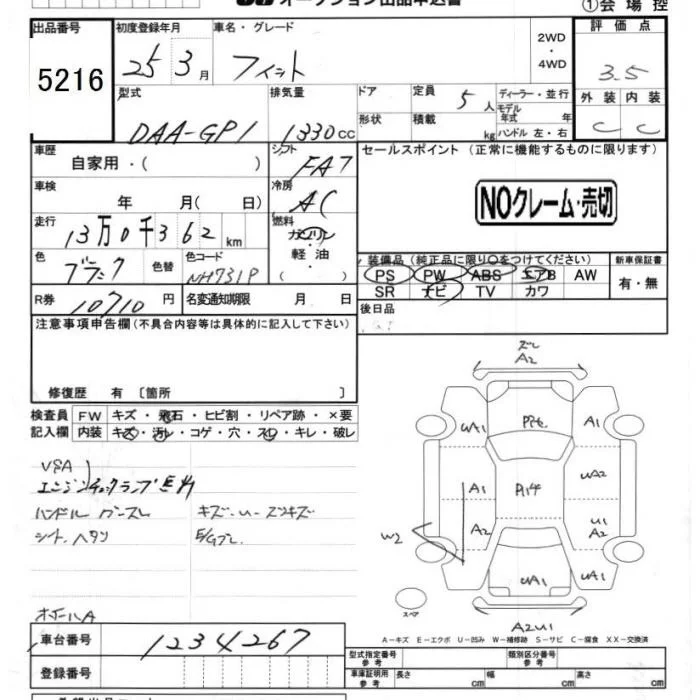 オークション出品申込書
①会場控
出品番号 初度登録年月 車名・グレード 評価点
5216 25 3月 フィット 2WD・4WD 3.5
型式 排気量 ドア 定員 5人 ディーラー・並行 外装 内装
DAA-GP1 1330cc 形状 積載 kg モデル年式 年 ハンドル 左・右 C C
車歴 シフト セールスポイント(正常に機能するものに限ります)
自家用・( ) FA7
車検 冷房 NOクレーム・売切
年 月( 日) AC
走行 燃料
13万0千362km ガソリン・軽油・( )
色 カラーコード 装備品(純正品に限り○をつけてください) 新車保証書
ブラック 色替 NH731P PS PW ABS エアB AW 有・無
SR ナビ TV カワ
R券 10710円 名変通知期限 月 日 後日品
注意事項申告欄(不具合内容等は具体的に記入して下さい)
修復歴 有〔箇所 〕
検査員 FW キズ・飛石・ヒビ割・リペア跡・×要
記入欄 内装 キズ・汚レ・コゲ・穴・スレ・キレ・破レ
VSA
エンジンチェックランプ点灯
ハンドル
キズ・U・スリキズ
シート ヘタリ
ズレ
A2
UA1 A1
A1 P14 UA2
W2 A2 U1 A2
UA1 UA1
スペア
A2U1
A-キズ E-エクボ U-凹み W-補修跡 S-サビ C-腐食 XX-交換済
車台番号 1234267 型式指定番号 参考 類別区分番号 参考
登録番号 車庫証明用 参考 長さ cm 幅 cm 高さ cm